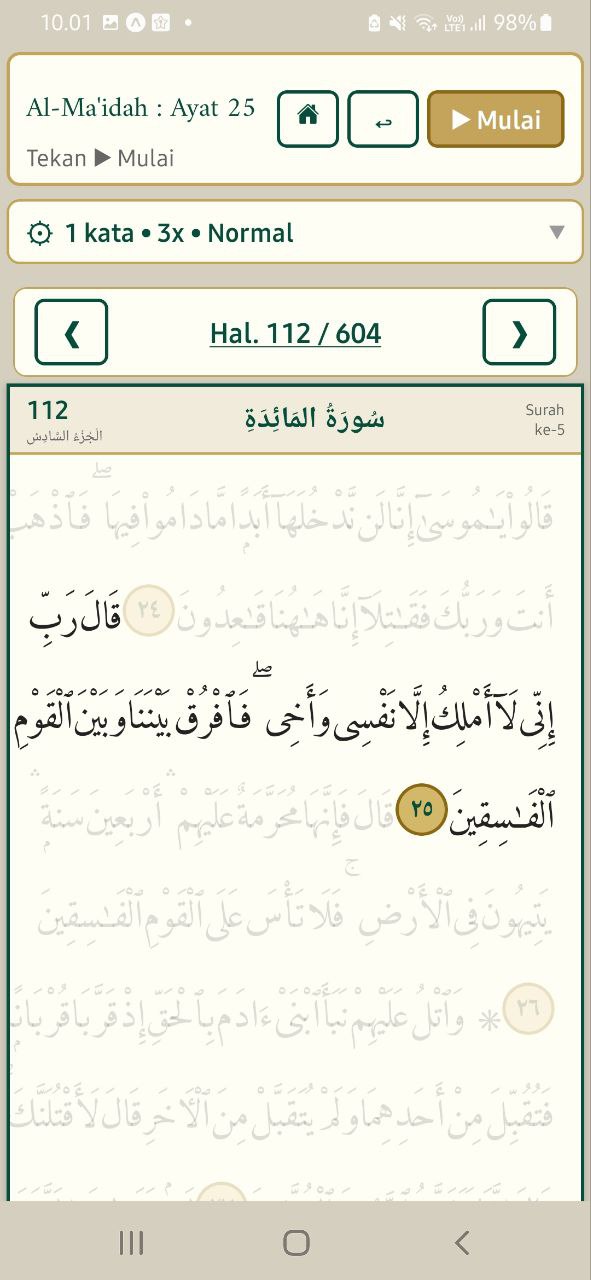 10.01 98%
Al-Ma'idah : Ayat 25
Tekan ▶ Mulai
▶ Mulai
1 kata • 3x • Normal
Hal. 112 / 604
112
الْجُزْءُ السَّادِسُ
سُورَةُ المَائِدَةِ
Surah
ke-5
قَالُوا۟ يَـٰمُوسَىٰٓ إِنَّا لَن نَّدْخُلَهَآ أَبَدًا مَّا دَامُوا۟ فِيهَا ۖ فَٱذْهَبْ
أَنتَ وَرَبُّكَ فَقَـٰتِلَآ إِنَّا هَـٰهُنَا قَـٰعِدُونَ ٢٤ قَالَ رَبِّ
إِنِّى لَآ أَمْلِكُ إِلَّا نَفْسِى وَأَخِى ۖ فَٱفْرُقْ بَيْنَنَا وَبَيْنَ ٱلْقَوْمِ
ٱلْفَـٰسِقِينَ ٢٥ قَالَ فَإِنَّهَا مُحَرَّمَةٌ عَلَيْهِمْ ۛ أَرْبَعِينَ سَنَةً ۛ
يَتِيهُونَ فِى ٱلْأَرْضِ ۚ فَلَا تَأْسَ عَلَى ٱلْقَوْمِ ٱلْفَـٰسِقِينَ
٢٦ * وَٱتْلُ عَلَيْهِمْ نَبَأَ ٱبْنَىْ ءَادَمَ بِٱلْحَقِّ إِذْ قَرَّبَا قُرْبَانًا
فَتُقُبِّلَ مِنْ أَحَدِهِمَا وَلَمْ يُتَقَبَّلْ مِنَ ٱلْـَٔاخَرِ قَالَ لَأَقْتُلَنَّكَ